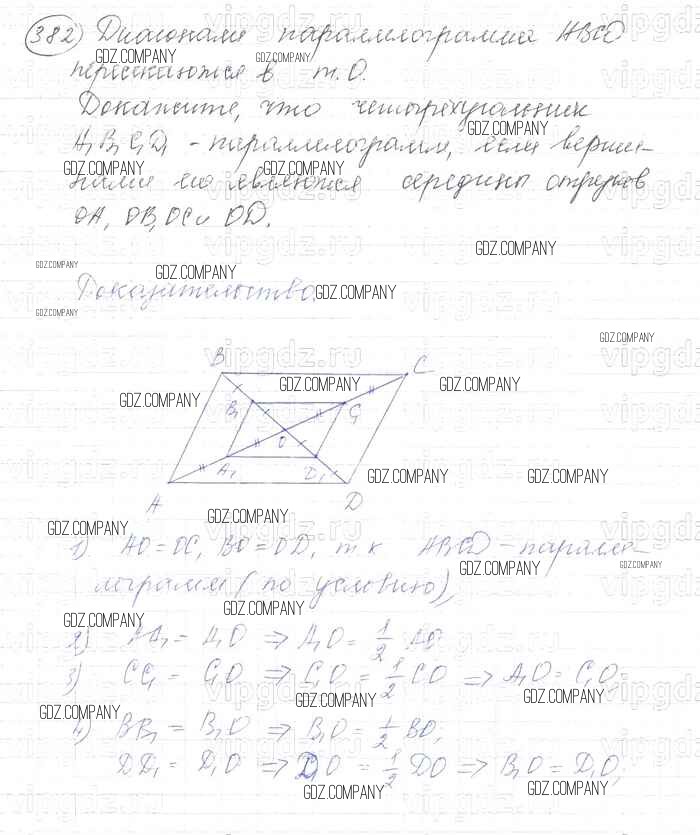 382) Диагонали параллелограмма ABCD
пересекаются в т. O.
Докажите, что четырёхугольник
A₁B₁C₁D₁ - параллелограмм, если верши-
нами его являются середины отрезков
OA, OB, OC и OD.
Доказательство.
B C
B₁ C₁
O
A₁ D₁
A D
1) AO = OC, BO = OD, т.к ABCD - паралле-
лограмм (по условию),
2) AA₁ = A₁O ⇒ A₁O = 1/2 AO
3) CC₁ = C₁O ⇒ C₁O = 1/2 CO ⇒ A₁O = C₁O,
4) BB₁ = B₁O ⇒ B₁O = 1/2 BO,
DD₁ = D₁O ⇒ D₁O = 1/2 DO ⇒ B₁O = D₁O,
GDZ.COMPANY
vipgdz.ru